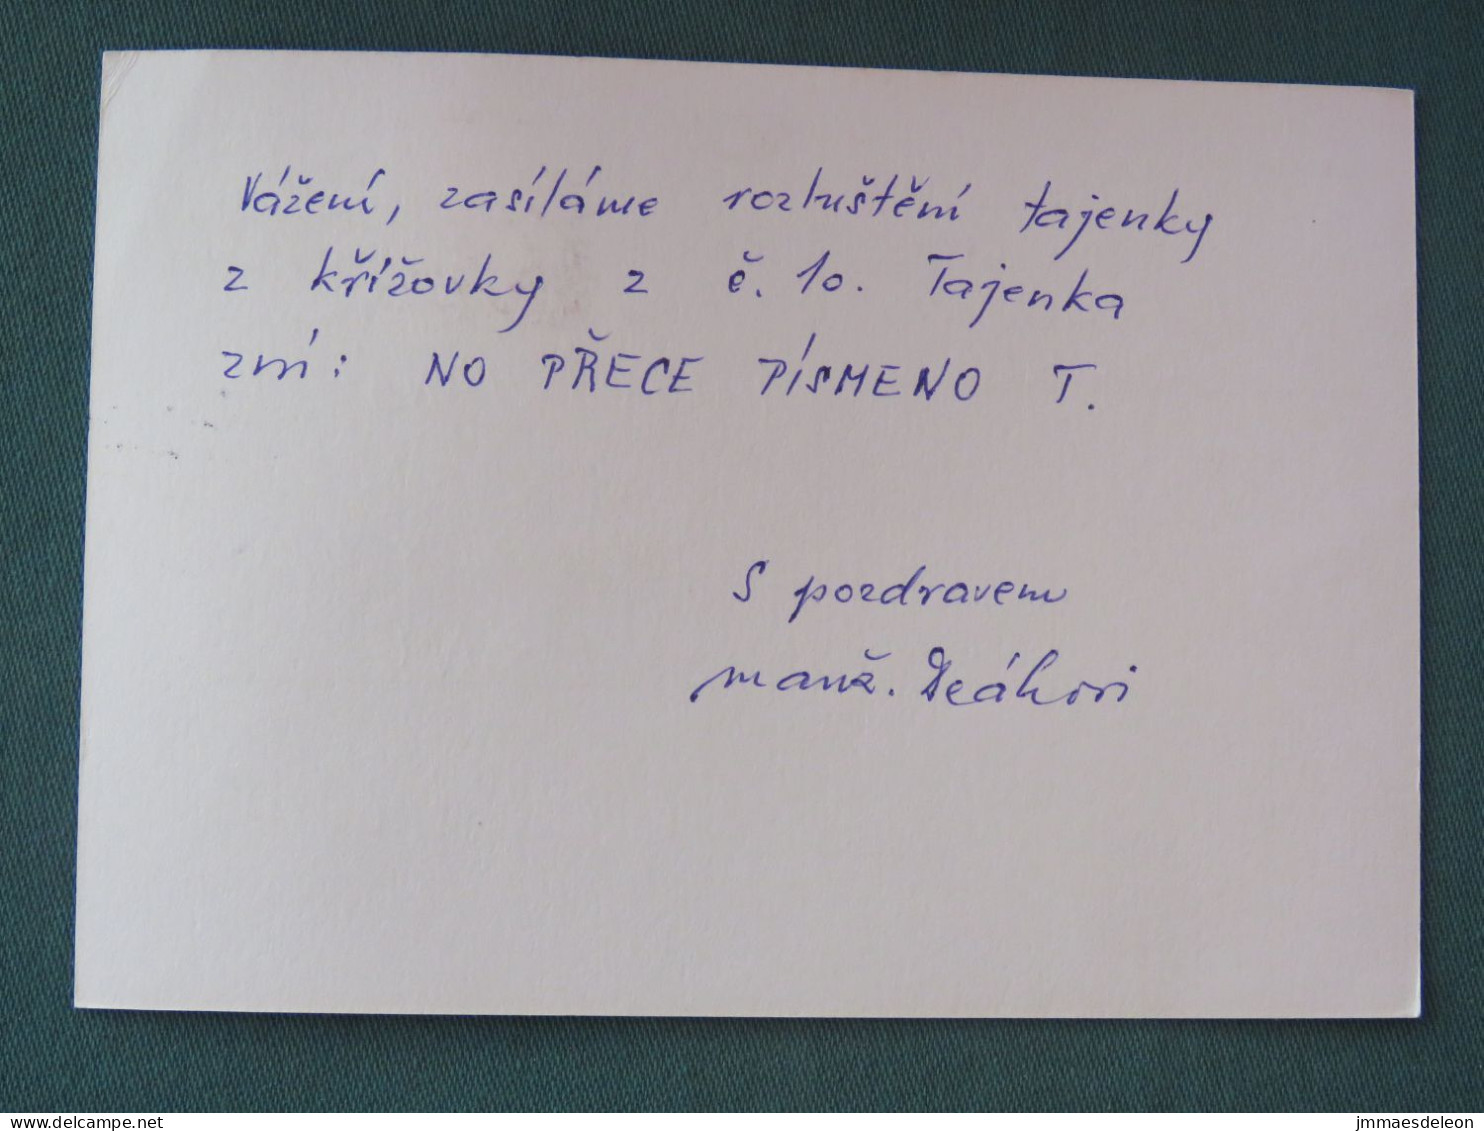 Vážení, zasíláme rozluštění tajenky
z křížovky z č. 10. Tajenka
zní: NO PŘECE PÍSMENO T.
S pozdravem
manž. Deákovi
delcampe.net
jmmaesdeleon